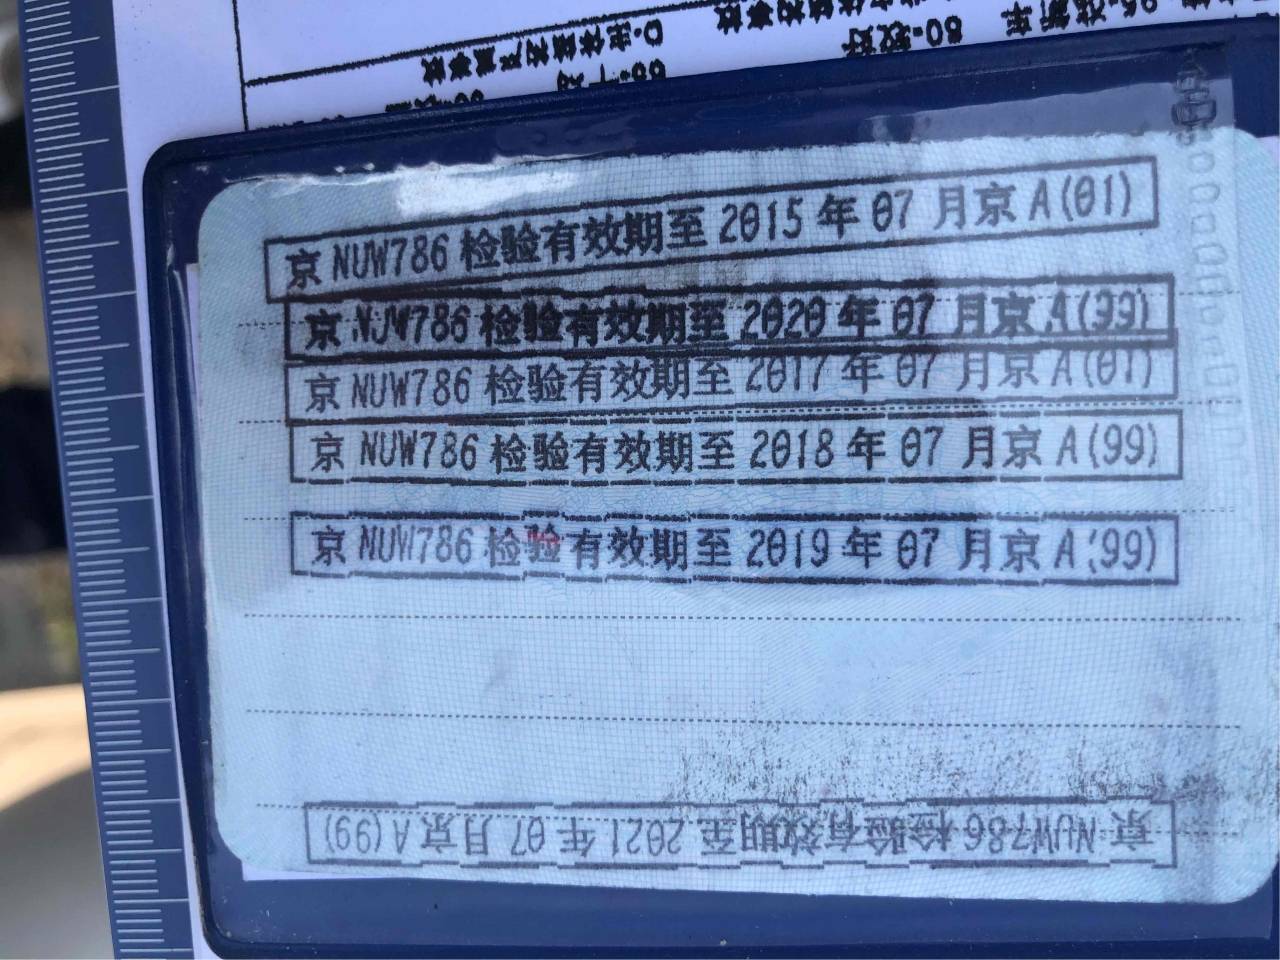 80.较好
D.出伴随构严重事故
京 NUW786 检验有效期至 2015 年 07 月京 A(01)
京 NUW786 检验有效期至 2020 年 07 月京 A(99)
京 NUW786 检验有效期至 2017 年 07 月京 A(01)
京 NUW786 检验有效期至 2018 年 07 月京 A(99)
京 NUW786 检验有效期至 2019 年 07 月京 A(99)
京 NUW786 检验有效期至 2021 年 07 月京 A(99)